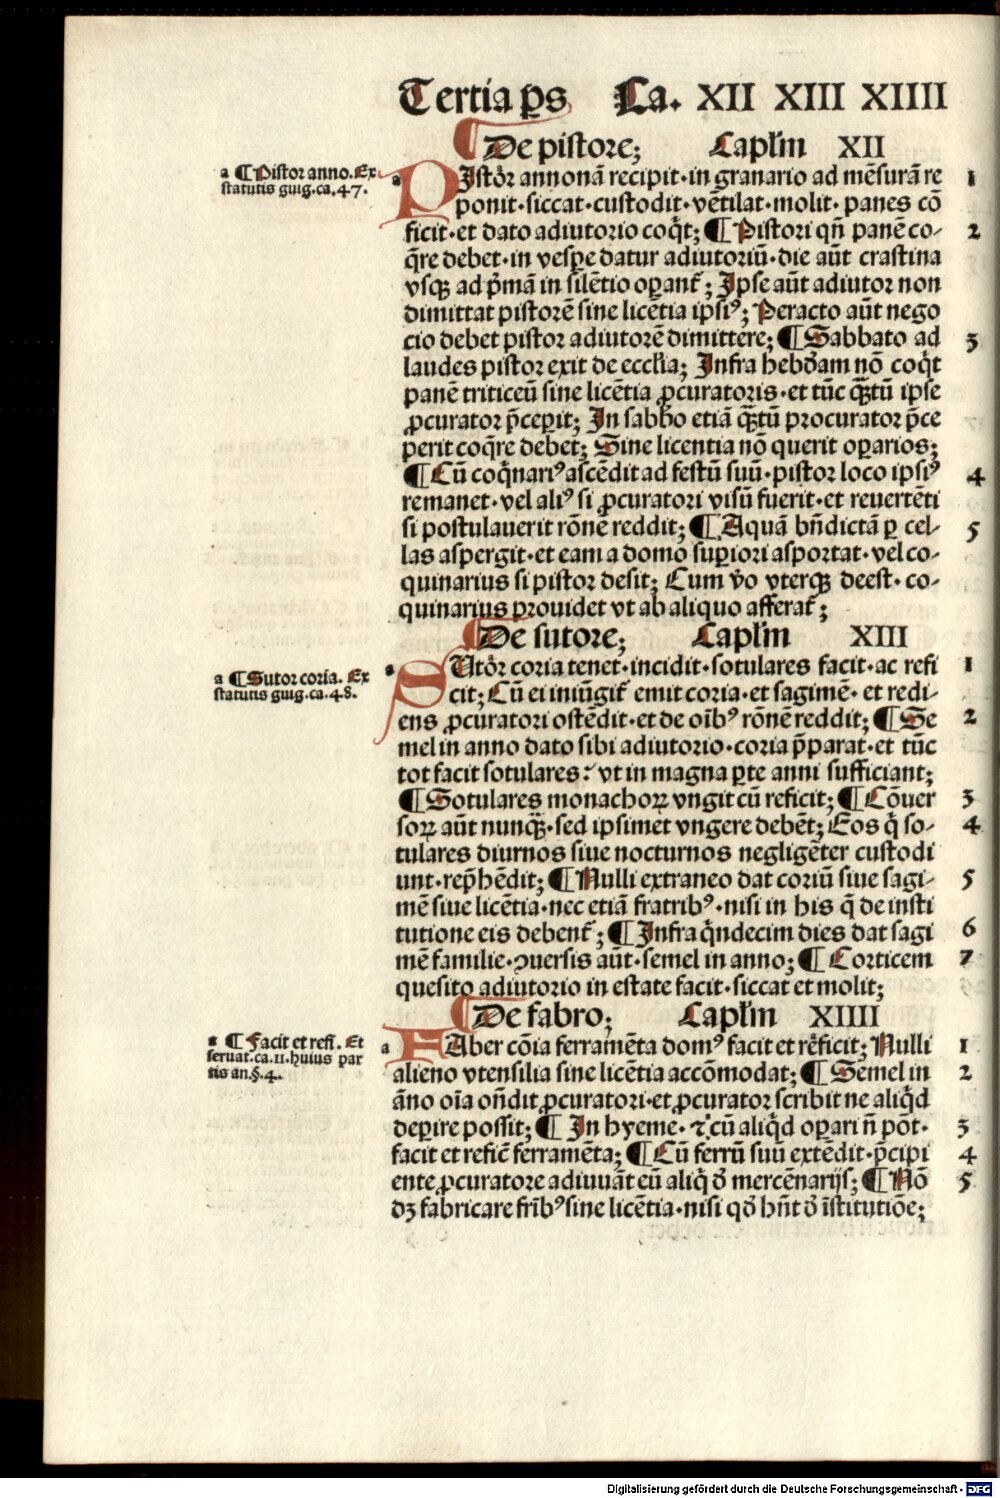 Tertia ꝑs Ca. XII XIII XIIII
¶ De pistore; Capl̃m XII
a ¶ Pistor anno. Ex
statutis guig. ca. 47.
a PIstõr annonã recipit · in granario ad mẽsurã re 1
ponit · siccat · custodit · vẽtilat · molit · panes cõ
ficit · et dato adiutorio coq̃t; ¶ Pistori qñ panẽ co- 2
q̃re debet · in vesꝑe datur adiutoriũ · die aũt crastina
vsqꝫ ad p̃mã in silẽtio oꝑant̃; Ipse aũt adiutor non
dimittat pistorẽ sine licẽtia ipsiꝰ; Peracto aũt nego
cio debet pistor adiutorẽ dimittere; ¶ Sabbato ad 3
laudes pistor exit de eccl̃ia; Infra hebd̃am nõ coq̃t
panẽ triticeũ sine licẽtia ꝓcuratoris · et tũc qꝫ̃tũ ipse
ꝓcurator p̃ceꝑit; In sabb̃o etiã qꝫ̃tũ procurator p̃ce
perit coq̃re debet; Sine licentia nõ querit oꝑarios;
¶ Cũ coq̃nariꝰ ascẽdit ad festũ suũ · pistor loco ipsiꝰ 4
remanet · vel aliꝰ si ꝓcuratori visũ fuerit · et reuertẽti
si postulauerit rõnẽ reddit; ¶ Aquã bñdictã ꝑ cel- 5
las aspergit · et eam a domo suꝑiori asportat · vel co-
quinarius si pistor desit; Cum ṽo vterqꝫ deest · co-
quinarius prouidet vt ab aliquo afferat̃;
¶ De sutore; Capl̃m XIII
a ¶ Sutor coria. Ex
statutis guig. ca. 48.
a SUtõr coria tenet · incidit · sotulares facit · ac refi 1
cit; Cũ ei iniũgit̃ emit coria · et sagimẽ · et redi-
ens ꝓcuratori ostẽdit · et de oĩbꝰ rõnẽ reddit; ¶ Se 2
mel in anno dato sibi adiutorio · coria p̃parat · et tũc
tot facit sotulares: vt in magna ꝑte anni sufficiant;
¶ Sotulares monachoꝝ vngit cũ reficit; ¶ Cõuer 3
soꝝ aũt nunqꝫ̃ · sed ipsimet vngere debẽt; Eos q̃ so- 4
tulares diurnos siue nocturnos negligẽter custodi
unt · rep̃hẽdit; ¶ Nulli extraneo dat coriũ siue sagi- 5
mẽ siue licẽtia · nec etiã fratribꝰ · nisi in his q̃ de insti
tutione eis debent̃; ¶ Infra q̃ndecim dies dat sagi 6
mẽ familie · ꝯuersis aũt · semel in anno; ¶ Corticem 7
quesito adiutorio in estate facit · siccat et molit;
¶ De fabro; Capl̃m XIIII
a ¶ Facit et reff. Et
seruat. ca. 11. huius par
tis an. §. 4.
a FAber cõia ferramẽta domꝰ facit et rẽficit; Nulli 1
alieno vtensilia sine licẽtia accõmodat; ¶ Semel in 2
ãno oĩa oñdit ꝓcuratori · et ꝓcurator scribit ne aliq̃d
deꝑire possit; ¶ In hyeme · ⁊ cũ aliq̃d oꝑari ñ põt · 3
facit et reficĩ ferramẽta; ¶ Cũ ferrũ suũ extẽdit · p̃cipi 4
ente ꝓcuratore adiuuãt eũ aliq̃ d̃ mercẽnarijs; ¶ Nõ 5
dꝫ fabricare fr̃ibꝰ sine licẽtia · nisi qd̃ hñt d̃ ĩstitutiõe;
Digitalisierung gefördert durch die Deutsche Forschungsgemeinschaft · DFG